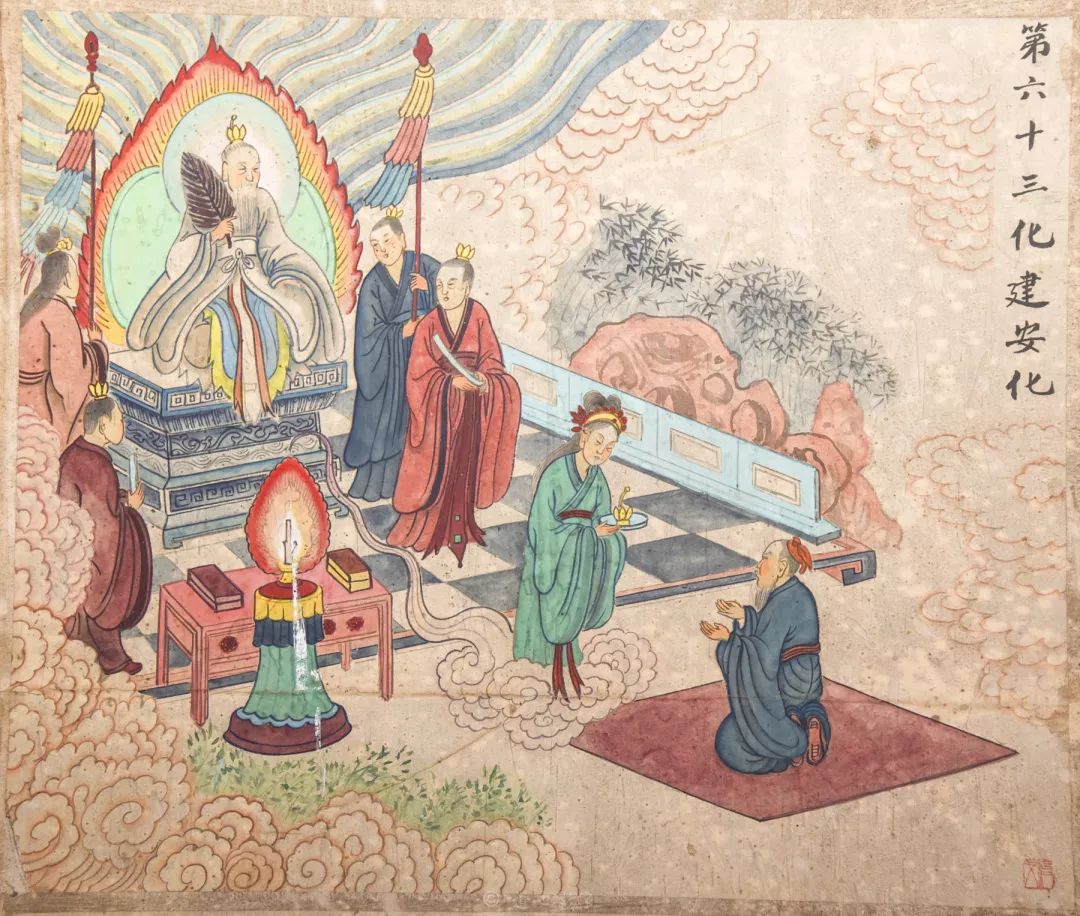 第六十三化建安化